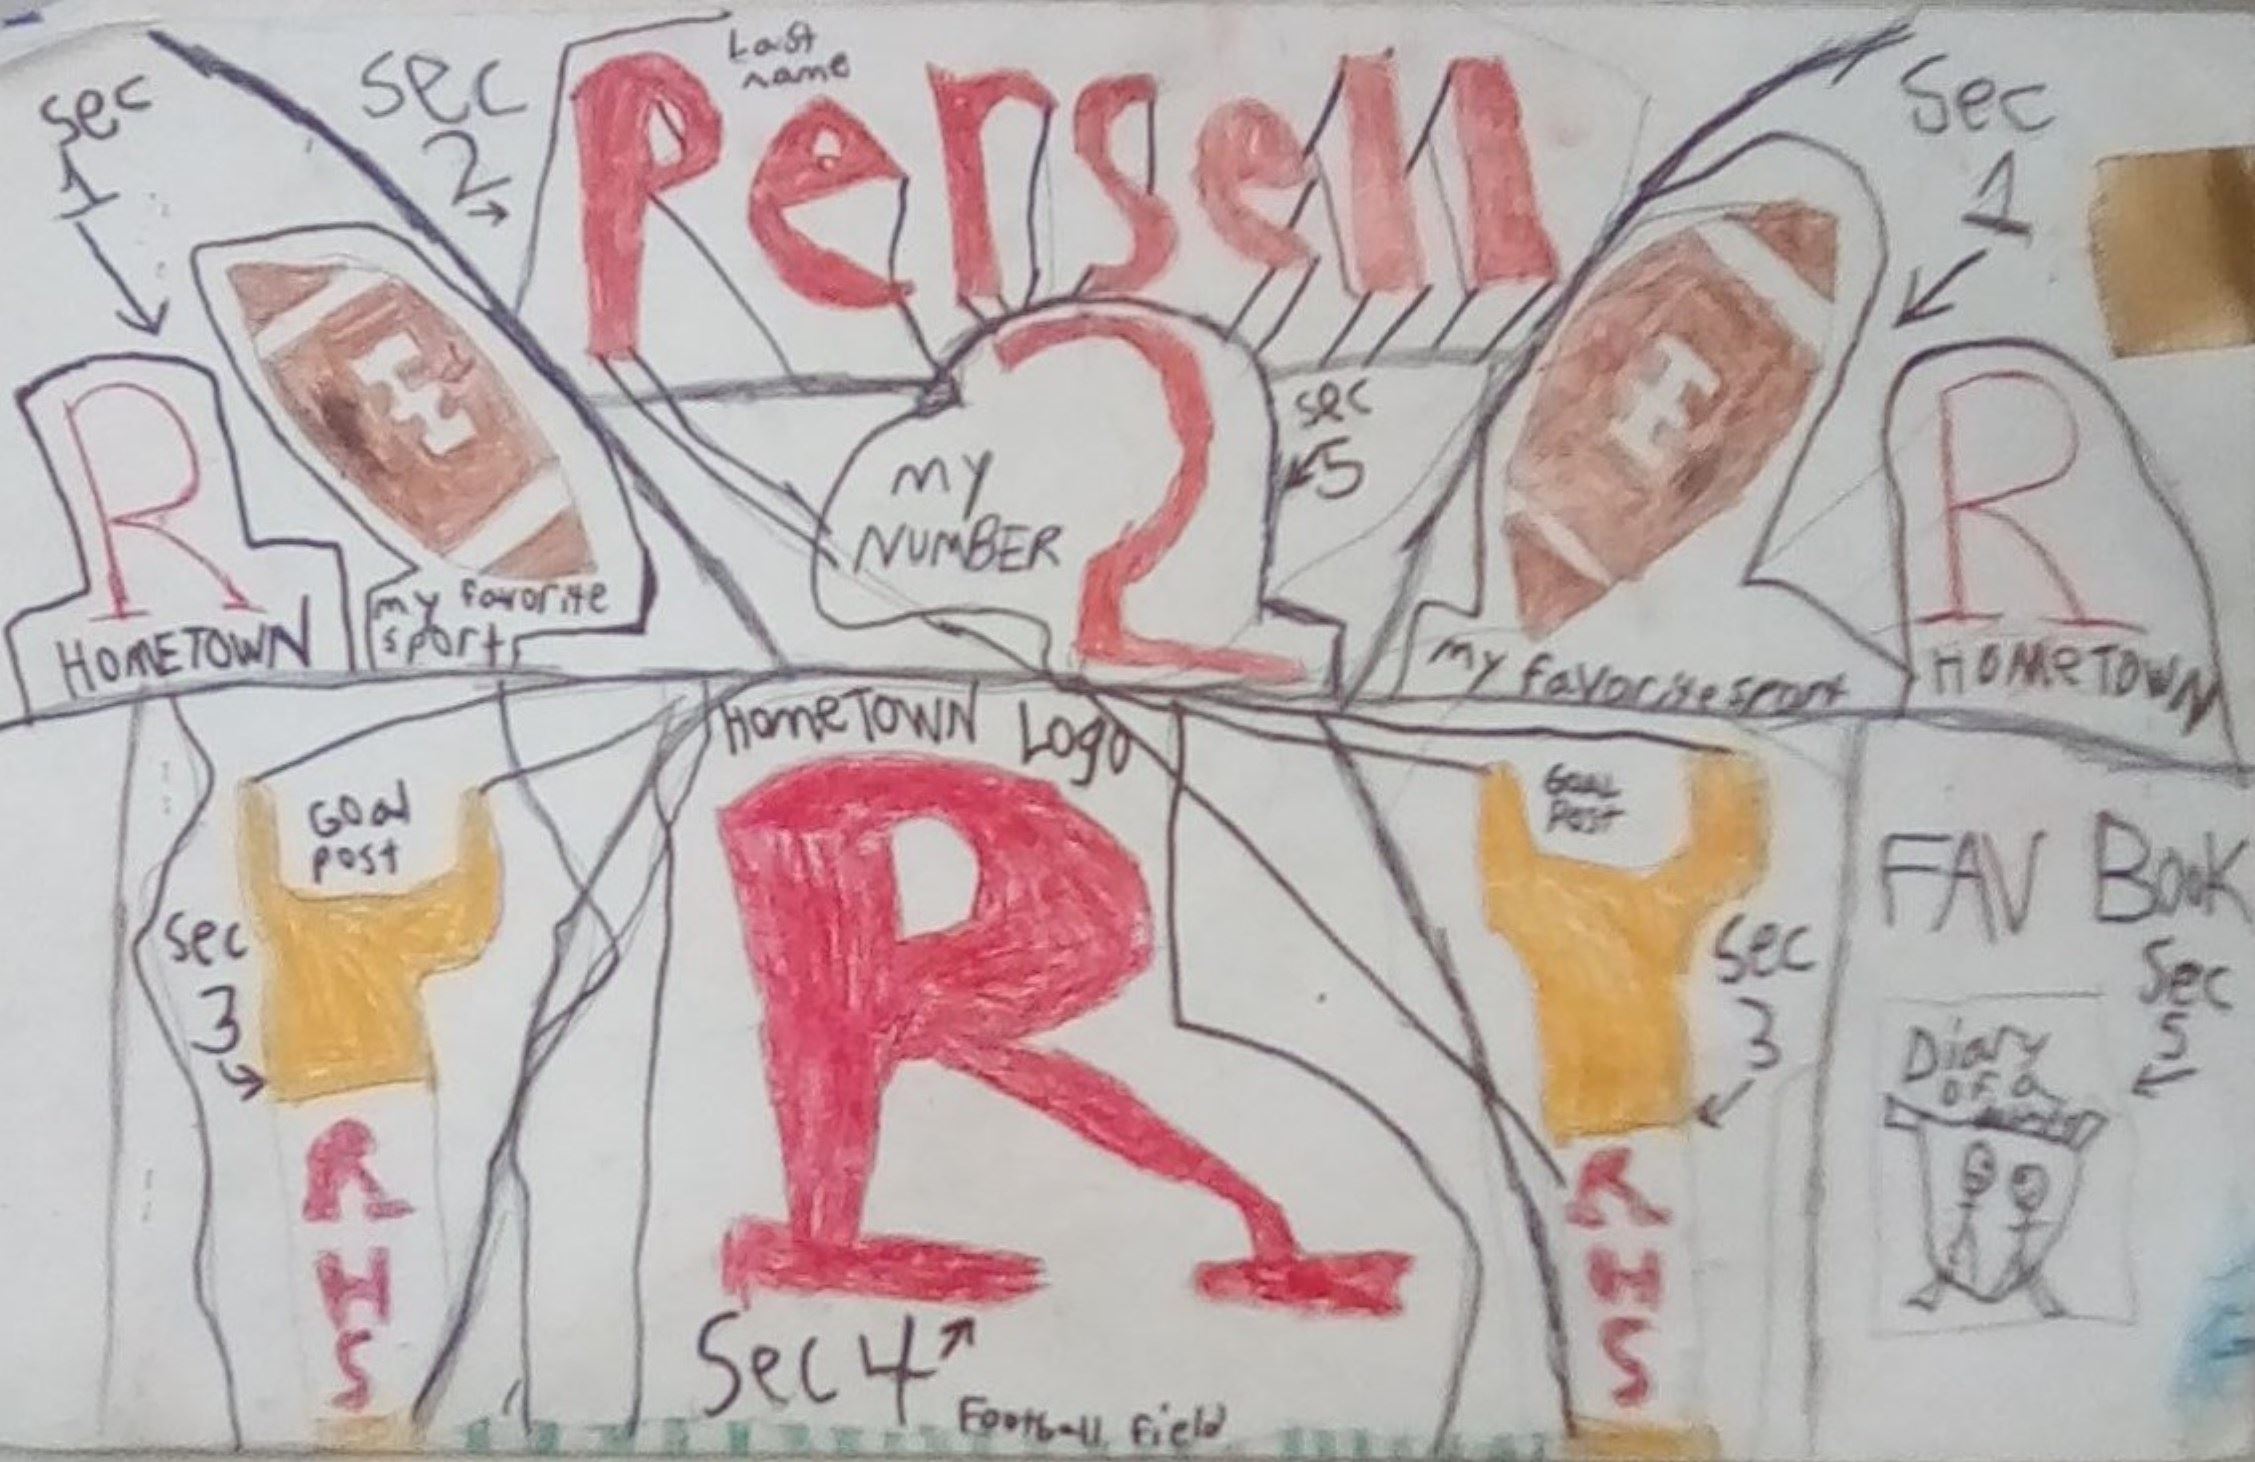 Sec
1
Sec
2
Last
name
Persell
Sec
1
R
HOMETOWN
E
my favorite
sport
MY
NUMBER
2
sec
5
E
my favorite sport
R
HOMETOWN
Goal
post
Sec
3
R
H
S
HomeTOWN Logo
R
Sec 4
Football Field
GOAL
Post
Sec
3
R
H
S
FAV BOOK
Sec
5
Diary
of a